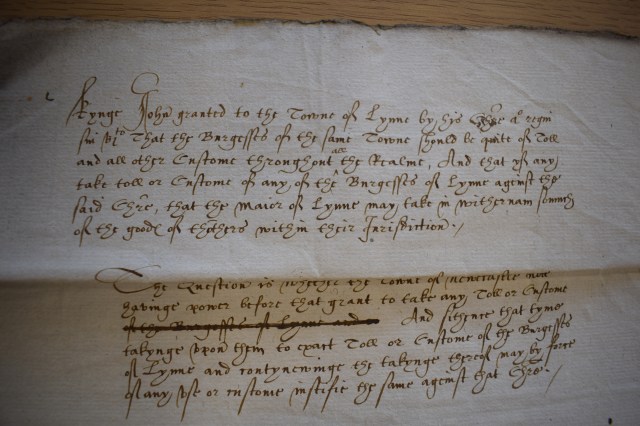 Kynge John granted to the Towne of Lynne by his Chre aº regni
sui vjto That the Burgesses of the same Towne should be quite of Toll
and all other Custome throughout all the Realme, And that yf any
take toll or Custome of any of the Burgesses of Lynne against the
said Chre, that the Maior of Lynne may take in withernam somuch
of the goodes of thothers within their Jurisdiction ./
The Question is whether the towne of newcastle not
havinge power before that grant to take any Toll or Custome
of the Burgesses of Lynne and And sithence that tyme
takynge vpon them to exact Toll or Custome of the Burgesses
of Lynne and contynewinge the takynge therof may by force
of any vse or custome iustifie the same against that Chre ./